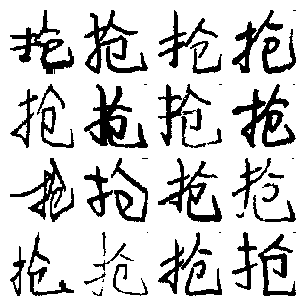 抢抢抢抢
抢抢抢抢
抢抢抢抢
抢抢抢抢